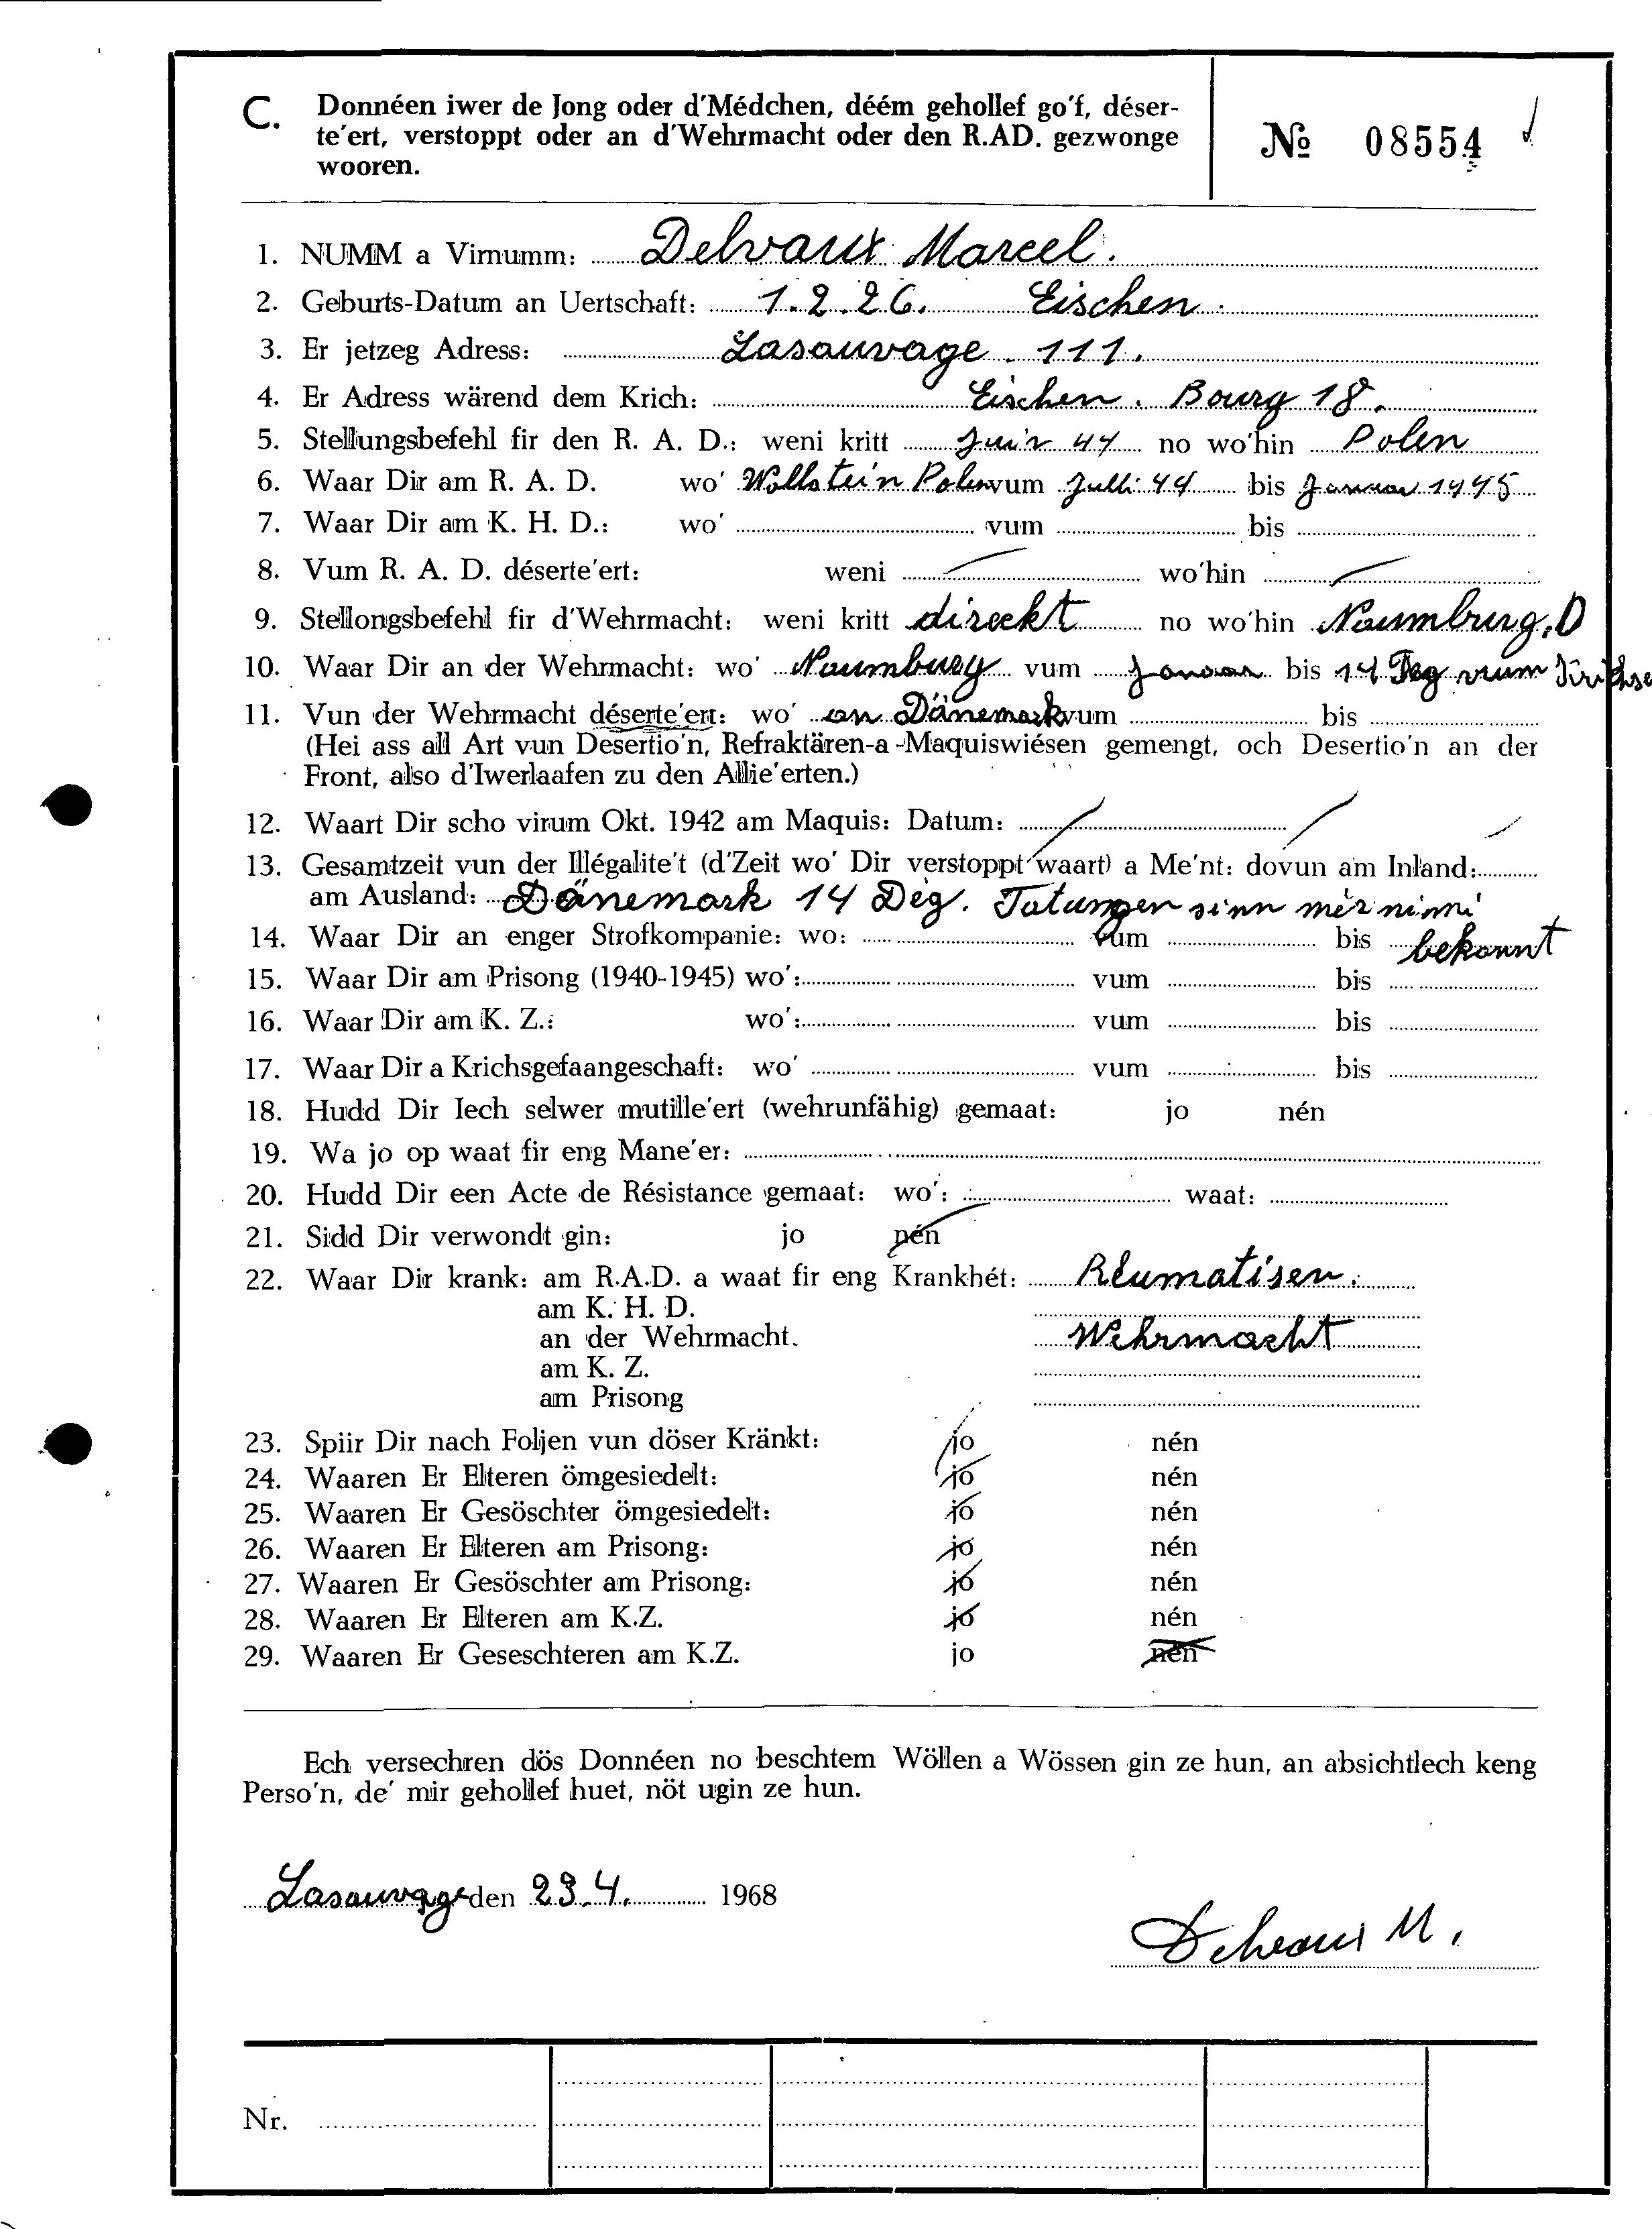 C. Donnéen iwer de Jong oder d'Médchen, déém gehollef go'f, déser-
te'ert, verstoppt oder an d'Wehrmacht oder den R.AD. gezwonge
wooren.
№ 08554
1. NUMM a Virnumm: Delvaux Marcel.
2. Geburts-Datum an Uertschaft: 1.2.26. Eischen.
3. Er jetzeg Adress: Lasauvage. 111.
4. Er Adress wärend dem Krich: Eischen. Bourg 18.
5. Stellungsbefehl fir den R. A. D.: weni kritt Juin 44 no wo'hin Polen
6. Waar Dir am R. A. D. wo' Wollstein Polen vum Julli 44 bis Januar 1945
7. Waar Dir am K. H. D.: wo' vum bis
8. Vum R. A. D. déserte'ert: weni wo'hin
9. Stellongsbefehl fir d'Wehrmacht: weni kritt direckt no wo'hin Naumburg. D
10. Waar Dir an der Wehrmacht: wo' Naumburg vum Januar bis 14 Deg vrum
11. Vun der Wehrmacht déserte'ert: wo' an Dänemark vum bis
(Hei ass all Art vun Desertio'n, Refraktären-a-Maquiswiésen gemengt, och Desertio'n an der
Front, also d'Iwerlaafen zu den Allie'erten.)
12. Waart Dir scho virum Okt. 1942 am Maquis: Datum:
13. Gesamtzeit vun der Illégalite't (d'Zeit wo' Dir verstoppt waart) a Me'nt: dovun am Inland:
am Ausland: Dänemark 14 Deg. Tatungen sinn mér nimmi
14. Waar Dir an enger Strofkompanie: wo: vum bis bekannt
15. Waar Dir am Prisong (1940-1945) wo': vum bis
16. Waar Dir am K. Z.: wo': vum bis
17. Waar Dir a Krichsgefaangeschaft: wo' vum bis
18. Hudd Dir Iech selwer mutille'ert (wehrunfähig) gemaat: jo nén
19. Wa jo op waat fir eng Mane'er:
20. Hudd Dir een Acte de Résistance gemaat: wo': waat:
21. Sidd Dir verwondt gin: jo nén
22. Waar Dir krank: am R.A.D. a waat fir eng Krankhét: Rëumatisen.
am K. H. D.
an der Wehrmacht. Wehrmacht
am K. Z.
am Prisong
23. Spiir Dir nach Foljen vun döser Kränkt: jo nén
24. Waaren Er Elteren ömgesiedelt: jo nén
25. Waaren Er Gesöschter ömgesiedelt: jo nén
26. Waaren Er Elteren am Prisong: jo nén
27. Waaren Er Gesöschter am Prisong: jo nén
28. Waaren Er Elteren am K.Z. jo nén
29. Waaren Er Geseschteren am K.Z. jo nén
Ech versechren dös Donnéen no beschtem Wöllen a Wössen gin ze hun, an absichtlech keng
Perso'n, de' mir gehollef huet, nöt ugin ze hun.
Lasauvage den 23.4. 1968
Delvaux M.
Nr.